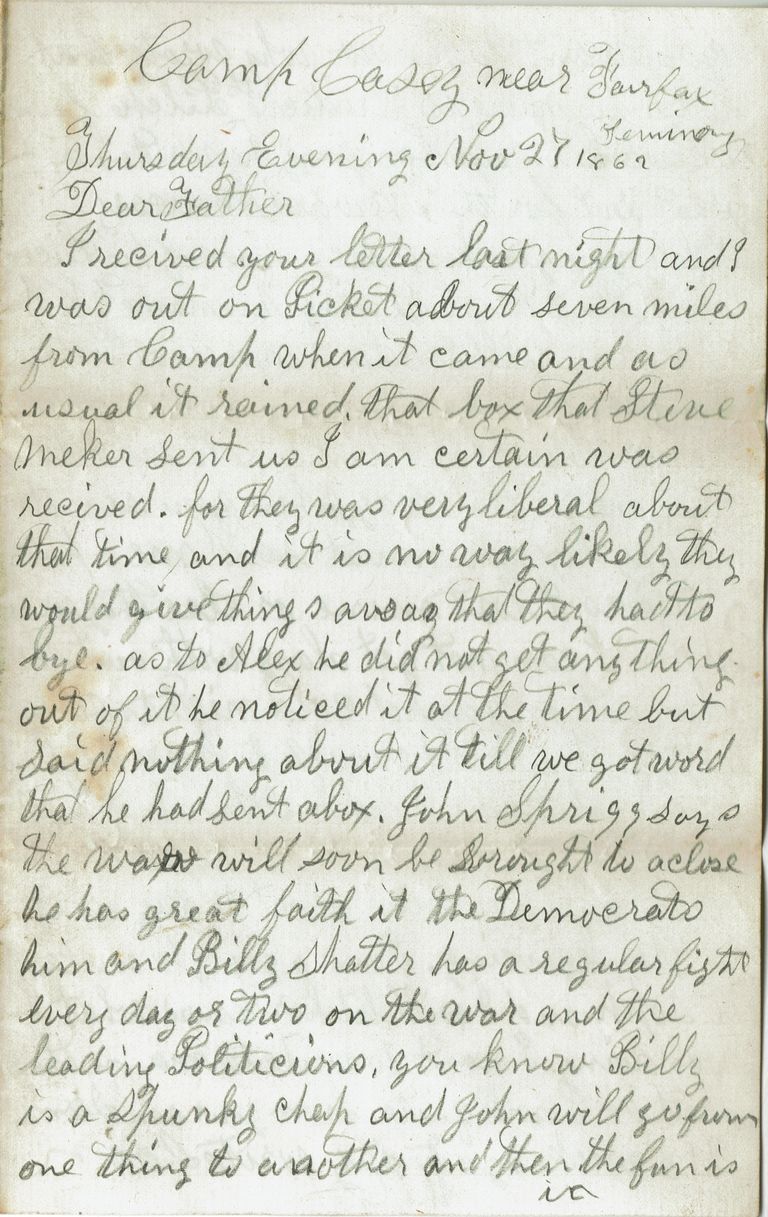 Camp Casey near Fairfax
Seminary
Thursday Evening Nov 27 1862
Dear Father
I recived your letter last night and I
was out on Picket about seven miles
from Camp when it came and as
usual it rained. that box that Steve
Meker sent us I am certain was
recived. for they was very liberal about
that time and it is no way likely they
would give things away that they had to
bye. as to Alex he did not get any thing
out of it he noticed it at the time but
said nothing about it till we got word
that he had sent a box. John Sprigg says
the war will soon be brought to a close
he has great faith it the Democrats
him and Billy Shatter has a regular fight
every day or two on the war and the
leading Politicions, you know Billy
is a Spunky chap and John will go from
one thing to another and then the fun is